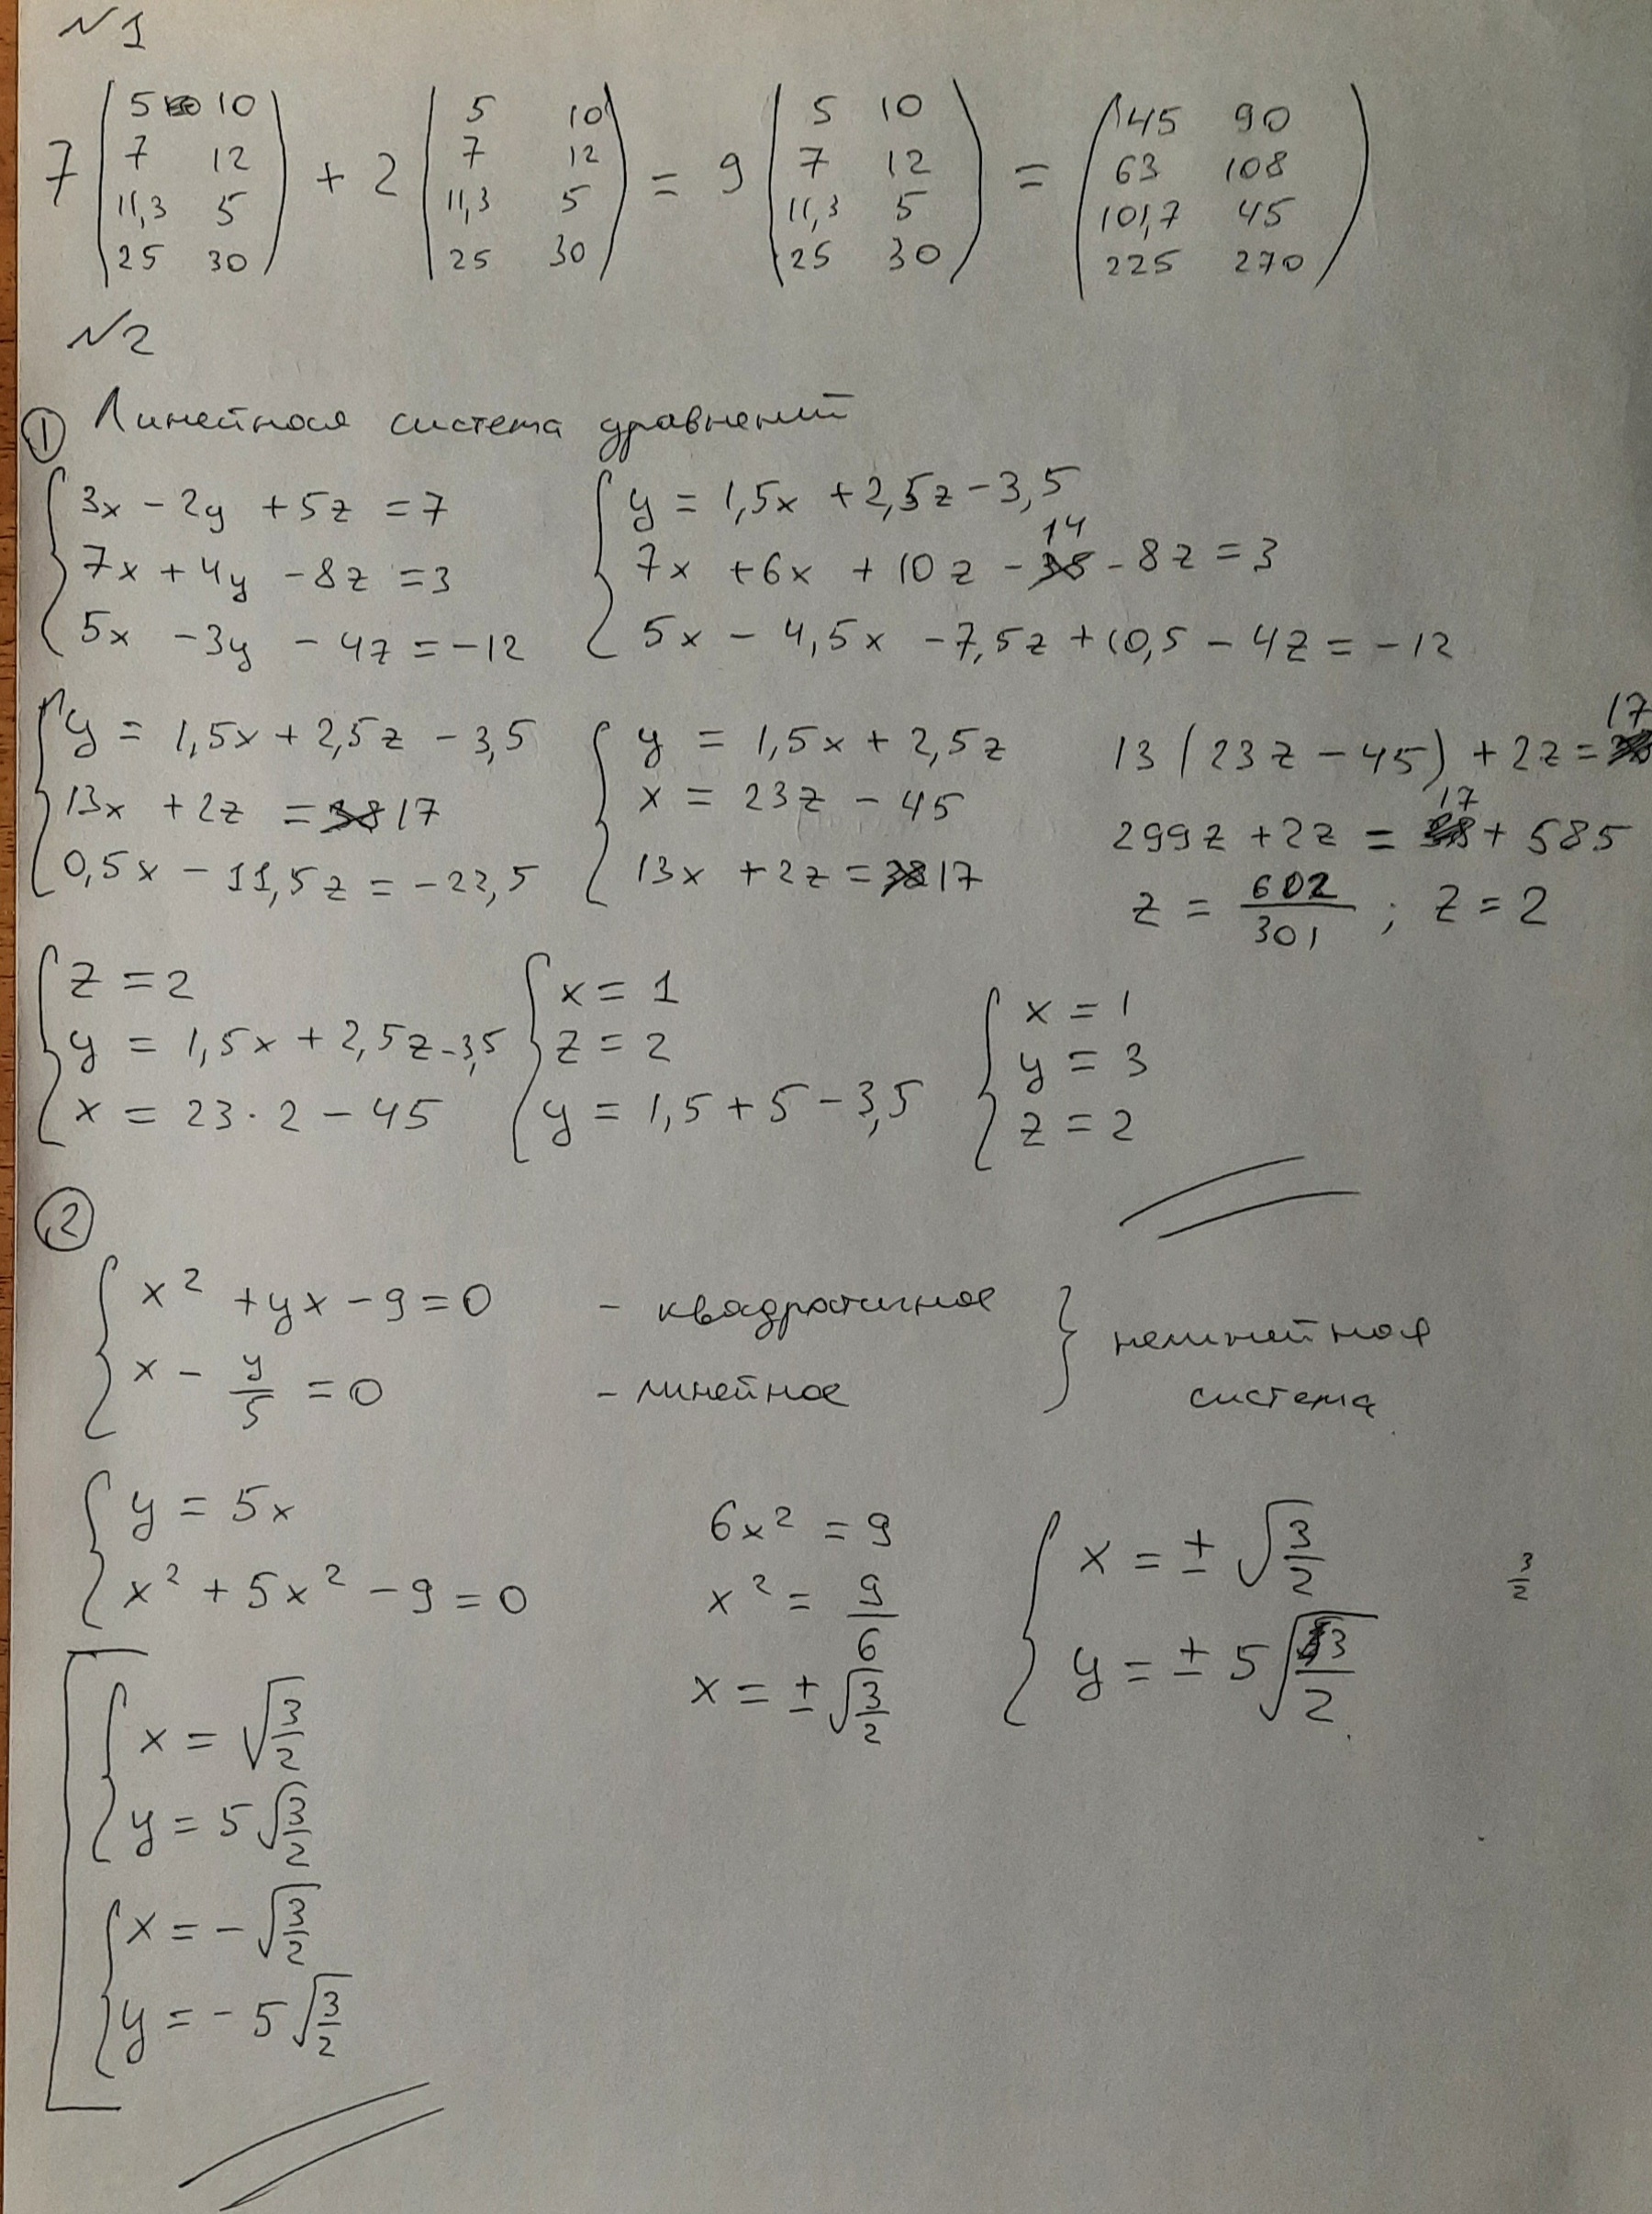 №1
7 ( 5 10 ) + 2 ( 5 10 ) = 9 ( 5 10 ) = ( 45 90 )
7 12 7 12 7 12 63 108
11,3 5 11,3 5 11,3 5 101,7 45
25 30 25 30 25 30 225 270
№2
① Линейная система уравнений
3x - 2y + 5z = 7
7x + 4y - 8z = 3
5x - 3y - 4z = -12
y = 1,5x + 2,5z - 3,5
7x + 6x + 10z - 14 - 8z = 3
5x - 4,5x - 7,5z + 10,5 - 4z = -12
y = 1,5x + 2,5z - 3,5
13x + 2z = 17
0,5x - 11,5z = -22,5
y = 1,5x + 2,5z
x = 23z - 45
13x + 2z = 17
13(23z - 45) + 2z = 17
299z + 2z = 17 + 585
z = 602/301 ; z = 2
z = 2
y = 1,5x + 2,5z - 3,5
x = 23·2 - 45
x = 1
z = 2
y = 1,5 + 5 - 3,5
x = 1
y = 3
z = 2
②
x² + yx - 9 = 0 - квадратичное
x - y/5 = 0 - линейное
нелинейная
система
y = 5x
x² + 5x² - 9 = 0
6x² = 9
x² = 9/6
x = ±√(3/2)
x = ±√(3/2)
y = ±5√(3/2)
3/2
x = √(3/2)
y = 5√(3/2)
x = -√(3/2)
y = -5√(3/2)